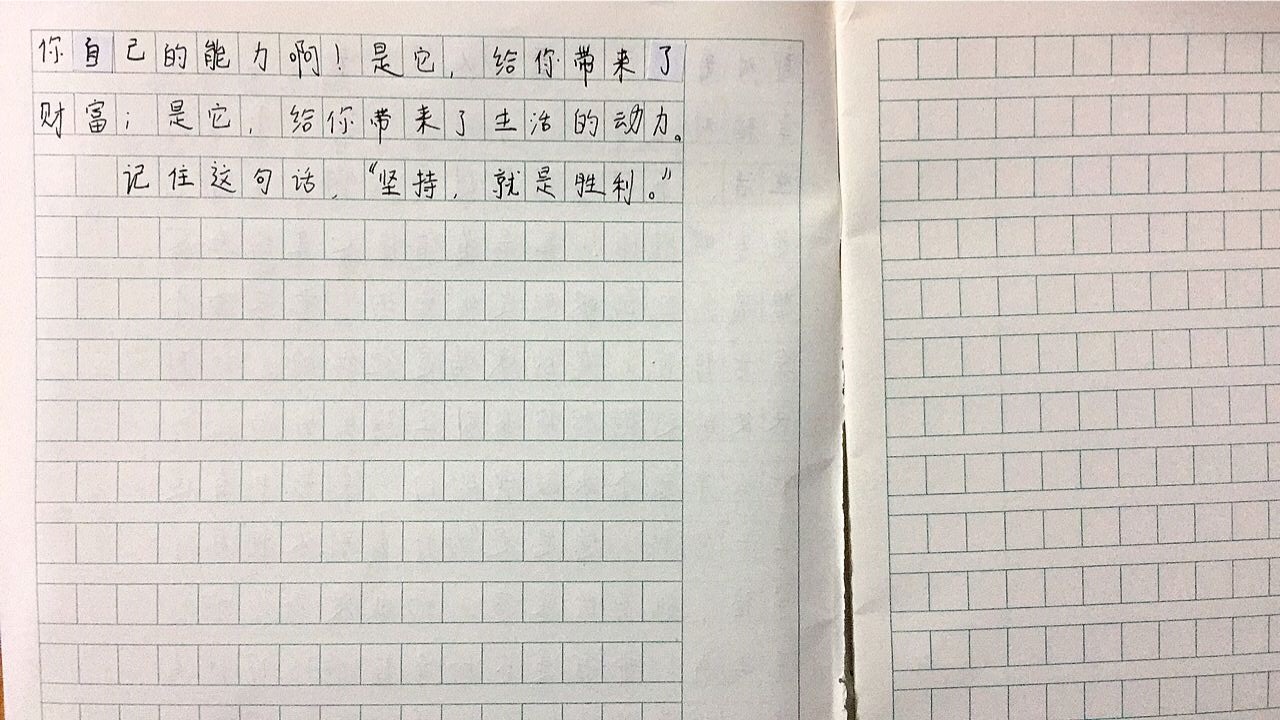 你自己的能力啊！是它，给你带来了
财富；是它，给你带来了生活的动力。
记住这句话，“坚持，就是胜利。”